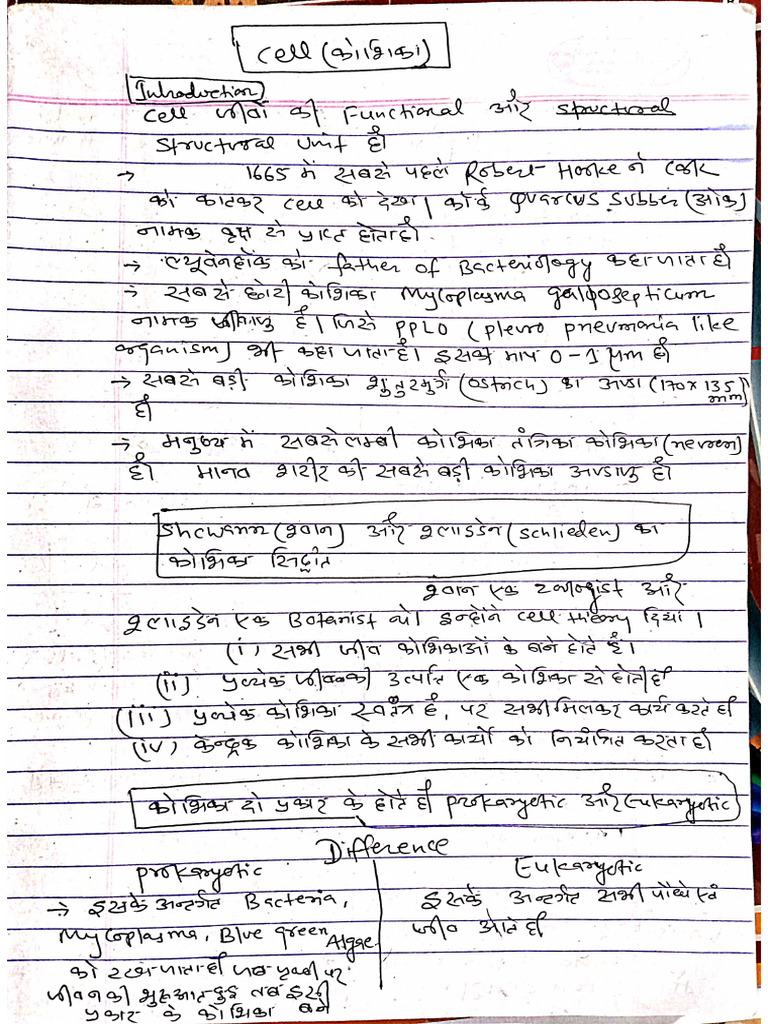 Cell (कोशिका)
Introduction
Cell जीवों की Functional और structural
structural unit है।
→ 1665 में सबसे पहले Robert Hooke ने cark
को काटकर cell को देखा। कॉर्क Quarcus Subber (ओक)
नामक वृक्ष से प्राप्त होता है।
→ ल्यूवेनहॉक को father of Bacteriology कहा जाता है।
→ सबसे छोटी कोशिका Mycoplasma galposepticum
नामक जीवाणु है। जिसे PPLO (pleuro pneumonia like
organism) भी कहा जाता है। इसकी माप 0-1 μm है।
→ सबसे बड़ी कोशिका शुतुरमुर्ग (ostrich) का अण्डा (170 x 135 mm)
है।
→ मनुष्य में सबसे लम्बी कोशिका तंत्रिका कोशिका (neuron)
है। मानव शरीर की सबसे बड़ी कोशिका अण्डाणु है।
Shcwann (श्वान) और श्लाइडेन (schlieden) का
कोशिका सिद्धांत
श्वान एक zoologist और
श्लाइडेन एक Botanist थे। इन्होंने cell theory दिया।
(i) सभी जीव कोशिकाओं के बने होते हैं।
(ii) प्रत्येक जीवन की उत्पत्ति एक कोशिका से होती है।
(iii) प्रत्येक कोशिका स्वतंत्र है, पर सभी मिलकर कार्य करते है।
(iv) केन्द्रक कोशिका के सभी कार्यों को नियंत्रित करता है।
कोशिका दो प्रकार के होते है। prokaryotic और Eukaryotic
Difference
prokaryotic
→ इसके अन्तर्गत Bacteria,
Mycoplasma, Blue green Algae
को रखा जाता है। जब पृथ्वी पर
जीवन की शुरूआत हुई तब इसी
प्रकार के कोशिका बने
Eukaryotic
इसके अन्तर्गत सभी पौधे एवं
जीव आते है।